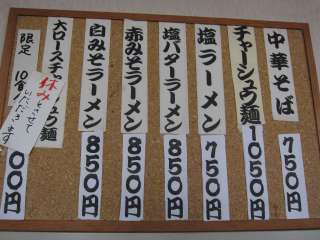 中華そば
750円
チャーシュウ麺
1050円
塩ラーメン
750円
塩バターラーメン
850円
赤みそラーメン
850円
白みそラーメン
850円
大ロースチャーシュウ麺
限定
10食
休みとさせて
いただきます
00円